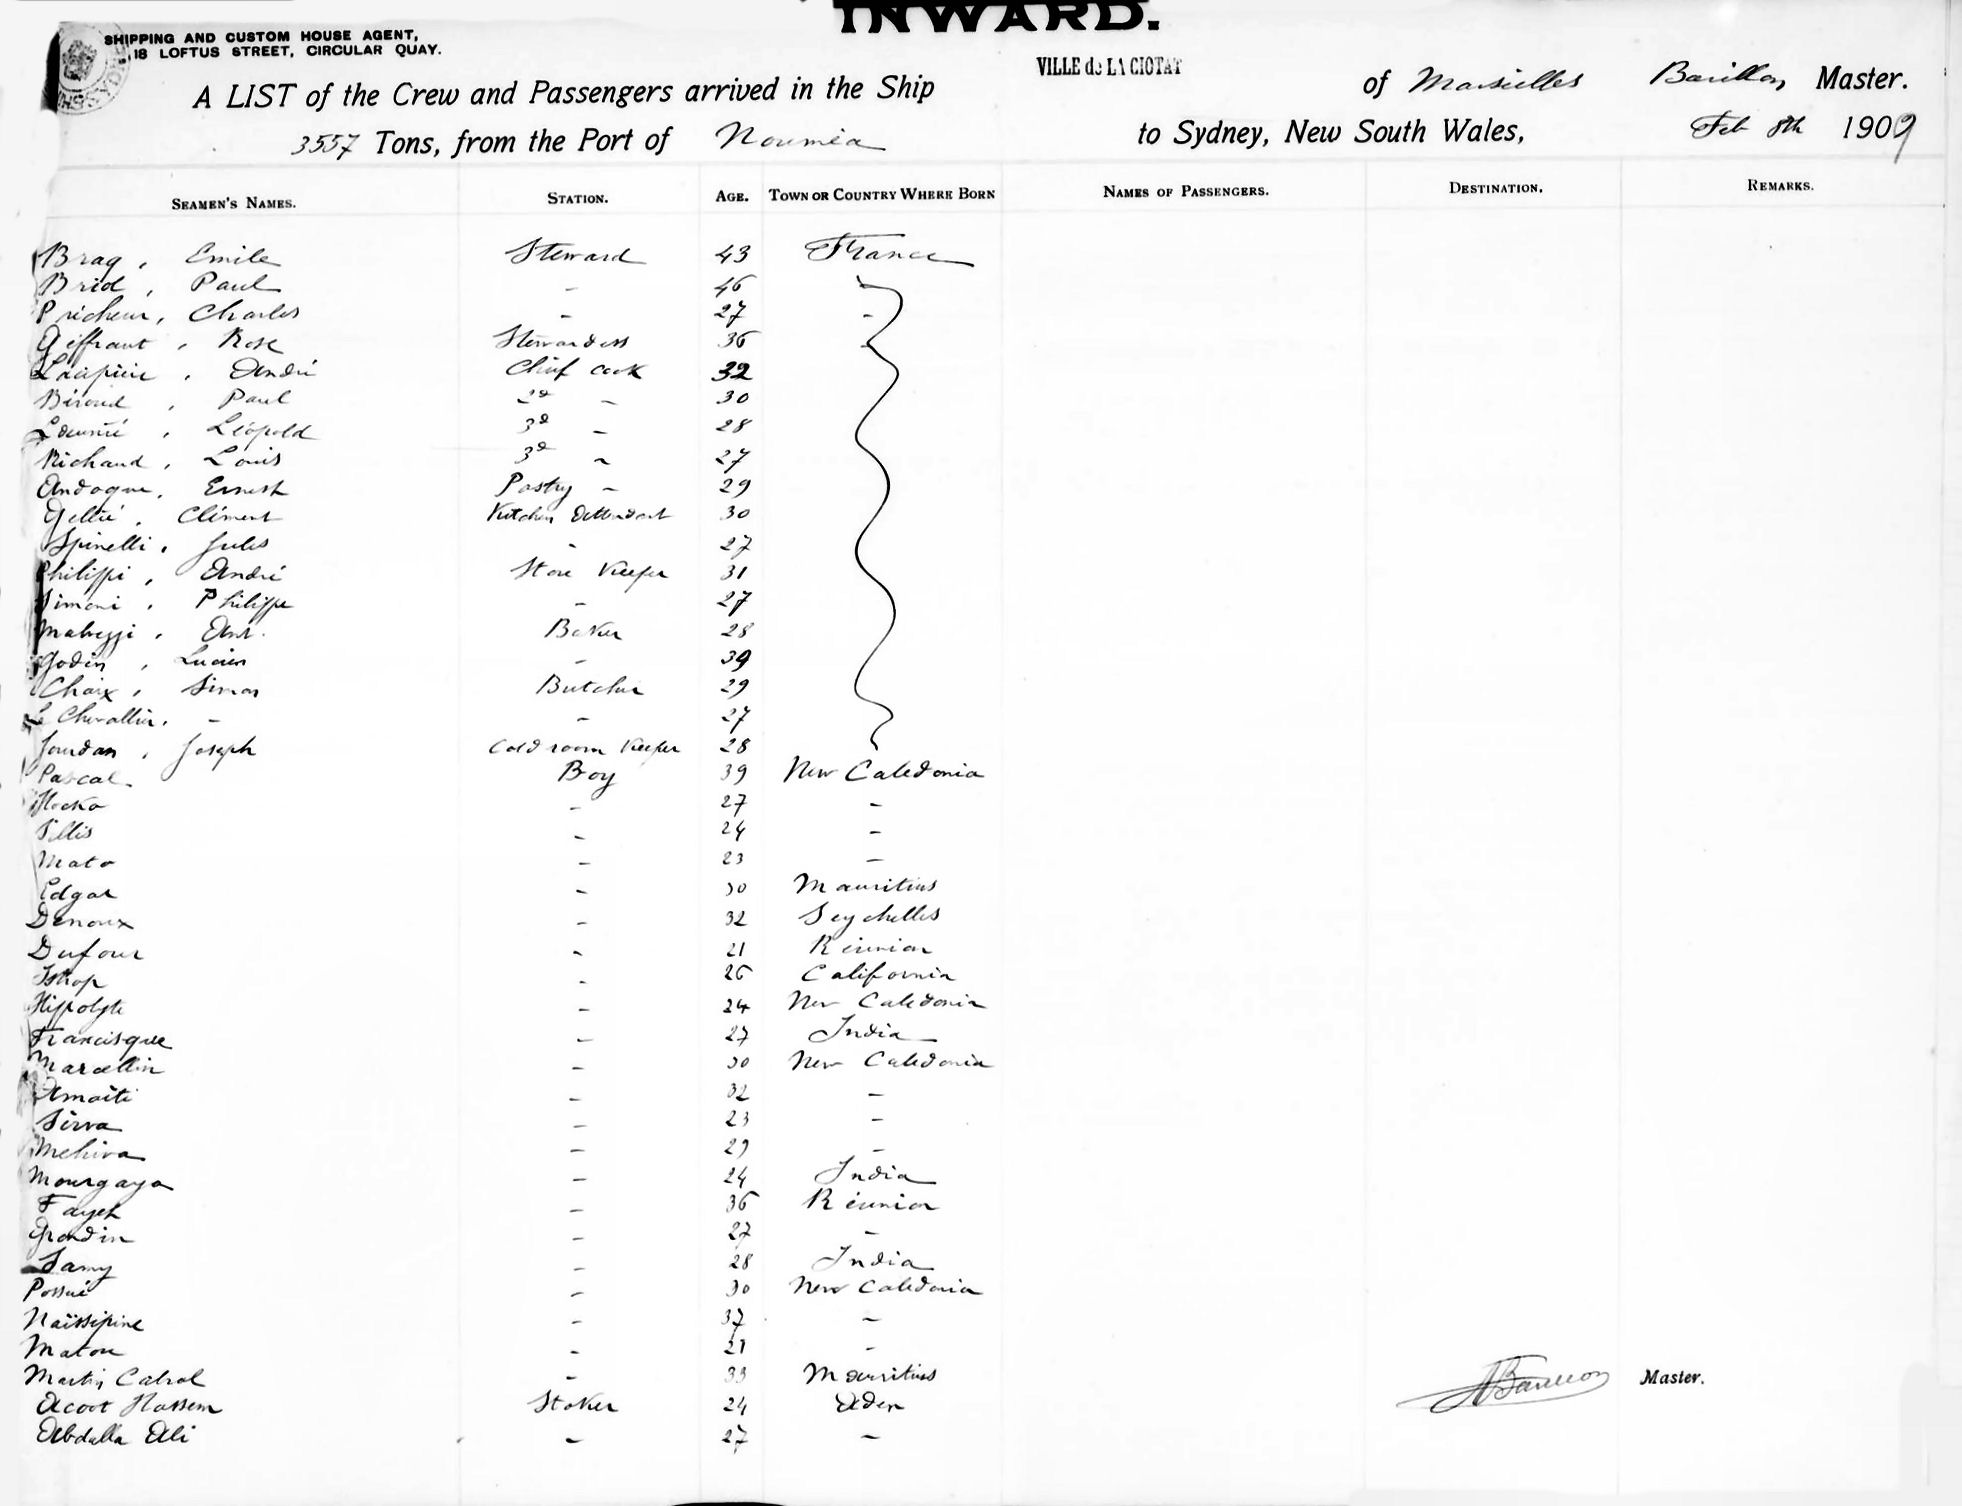 INWARD.
SHIPPING AND CUSTOM HOUSE AGENT,
18 LOFTUS STREET, CIRCULAR QUAY.
VILLE de LA CIOTAT
A LIST of the Crew and Passengers arrived in the Ship of Marseilles Barillon Master.
3557 Tons, from the Port of Nouméa to Sydney, New South Wales, Feb 8th 1909
SEAMEN'S NAMES. STATION. AGE. TOWN OR COUNTRY WHERE BORN NAMES OF PASSENGERS. DESTINATION. REMARKS.
Brag, Emile Steward 43 France
Brid, Paul - 46 -
Pricheur, Charles - 27 -
Giffraut, Rose Stewardess 36 -
André Chief cook 32
Paul 2d - 30
Léopold 3d - 28
Richaud, Louis 3d - 27
Andogue, Ernest Pastry - 29
Gellié, Clément Kitchen Attendant 30
Spinelli, Jules - 27
Philippi, André Store Keeper 31
Simoni, Philippe - 27
Ant. Baker 28
Godin, Lucien - 39
Chaix, Simon Butcher 29
Le Chevallier, - - 27
Jourdan, Joseph Cold room Keeper 28
Pascal Boy 39 New Caledonia
Hocko - 27 -
Sillis - 24 -
Mato - 23 -
Edgar - 30 Mauritius
Denoux - 32 Seychelles
Dufour - 21 Réunion
- 26 California
Hippolyte - 24 New Caledonia
Francisque - 27 India
Marcellin - 30 New Caledonia
Amaiti - 32 -
Sirra - 23 -
Mehiva - 29 -
Mourgaya - 24 India
Fayet - 36 Réunion
Grondin - 27 -
Samy - 28 India
Possué - 30 New Caledonia
Naïssipine - 37 -
Matou - 21 -
Martin Cabral - 33 Mauritius
ABarillon Master.
Acoot Hassem Stoker 24 Aden
Abdalla Ali - 27 -